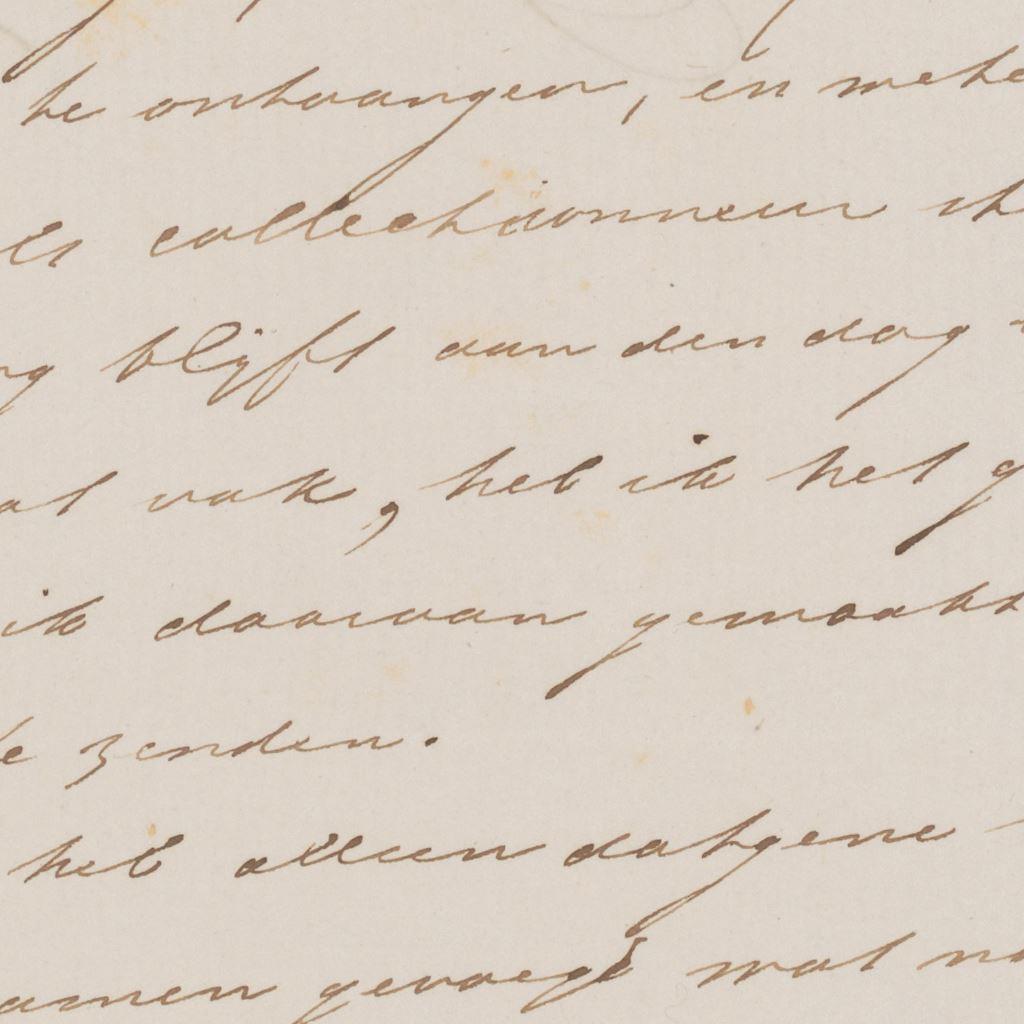 te ontvangen, en wete
als collectionneur ik
ng blijft aan den dag
at vak, heb ik het g
ik daarvan gemaakt
te zenden.
heb alleen datgene
samen gevoegd wat no